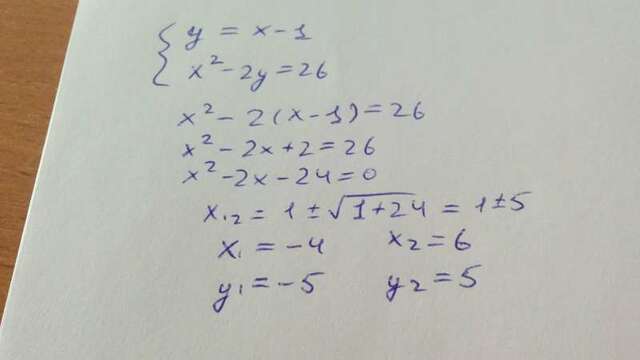 { y = x - 1
x² - 2y = 26
x² - 2(x - 1) = 26
x² - 2x + 2 = 26
x² - 2x - 24 = 0
x₁₂ = 1 ± √1+24 = 1 ± 5
x₁ = -4 x₂ = 6
y₁ = -5 y₂ = 5